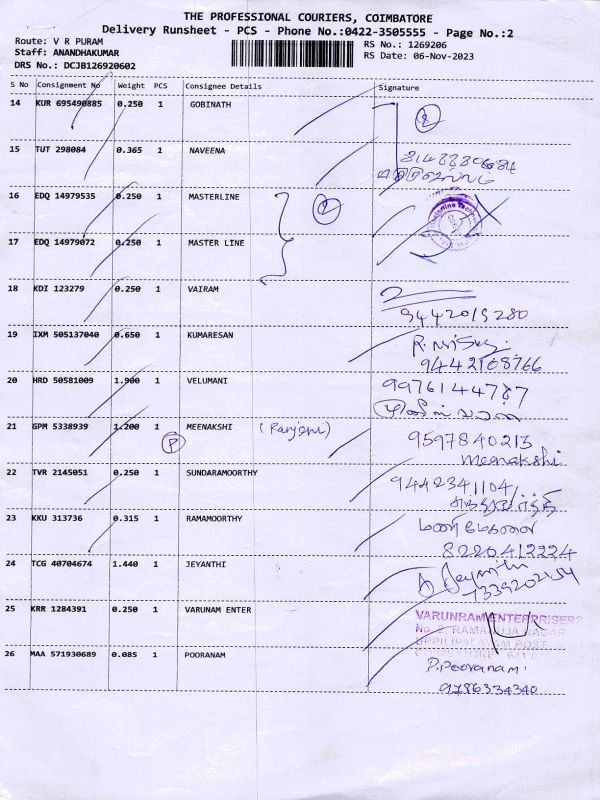 THE PROFESSIONAL COURIERS, COIMBATORE
Delivery Runsheet - PCS - Phone No.:0422-3505555 - Page No.:2
Route: V R PURAM
RS No.: 1269206
Staff: ANANDHAKUMAR
RS Date: 06-Nov-2023
DRS No.: DCJB126920602
S No Consignment No Weight PCS Consignee Details Signature
14 KUR 695490885 0.250 1 GOBINATH
15 TUT 298084 0.365 1 NAVEENA
16 EDQ 14979535 0.250 1 MASTERLINE
17 EDQ 14979072 0.250 1 MASTER LINE
18 KDI 123279 0.250 1 VAIRAM
9442019280
19 IXM 505137040 0.650 1 KUMARESAN
9442108766
20 HRD 50581009 1.900 1 VELUMANI
9976144787
21 GPM 5338939 1.200 1 MEENAKSHI (Ranjeni)
P
9597840213
Meenakshi
22 TVR 2145051 0.250 1 SUNDARAMOORTHY
9442341104
23 KKU 313736 0.315 1 RAMAMOORTHY
8220412224
24 TCG 40704674 1.440 1 JEYANTHI
25 KRR 1284391 0.250 1 VARUNAM ENTER
VARUNRAM ENTERPRISERS
No. 2, RAMANUJA NAGAR
UPPILIPALAYAM POST
26 MAA 571930689 0.085 1 POORANAM
P.Pooranam.
9786334340